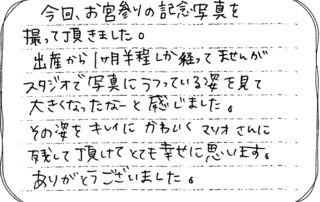 今回、お宮参りの記念写真を
撮って頂きました。
出産から1ヶ月半程しか経ってませんが
スタジオで写真にうつっている姿を見て
大きくなったなーと感じました。
その姿をキレイにかわいくマリオさんに
残して頂けてとても幸せに思います。
ありがとうございました。